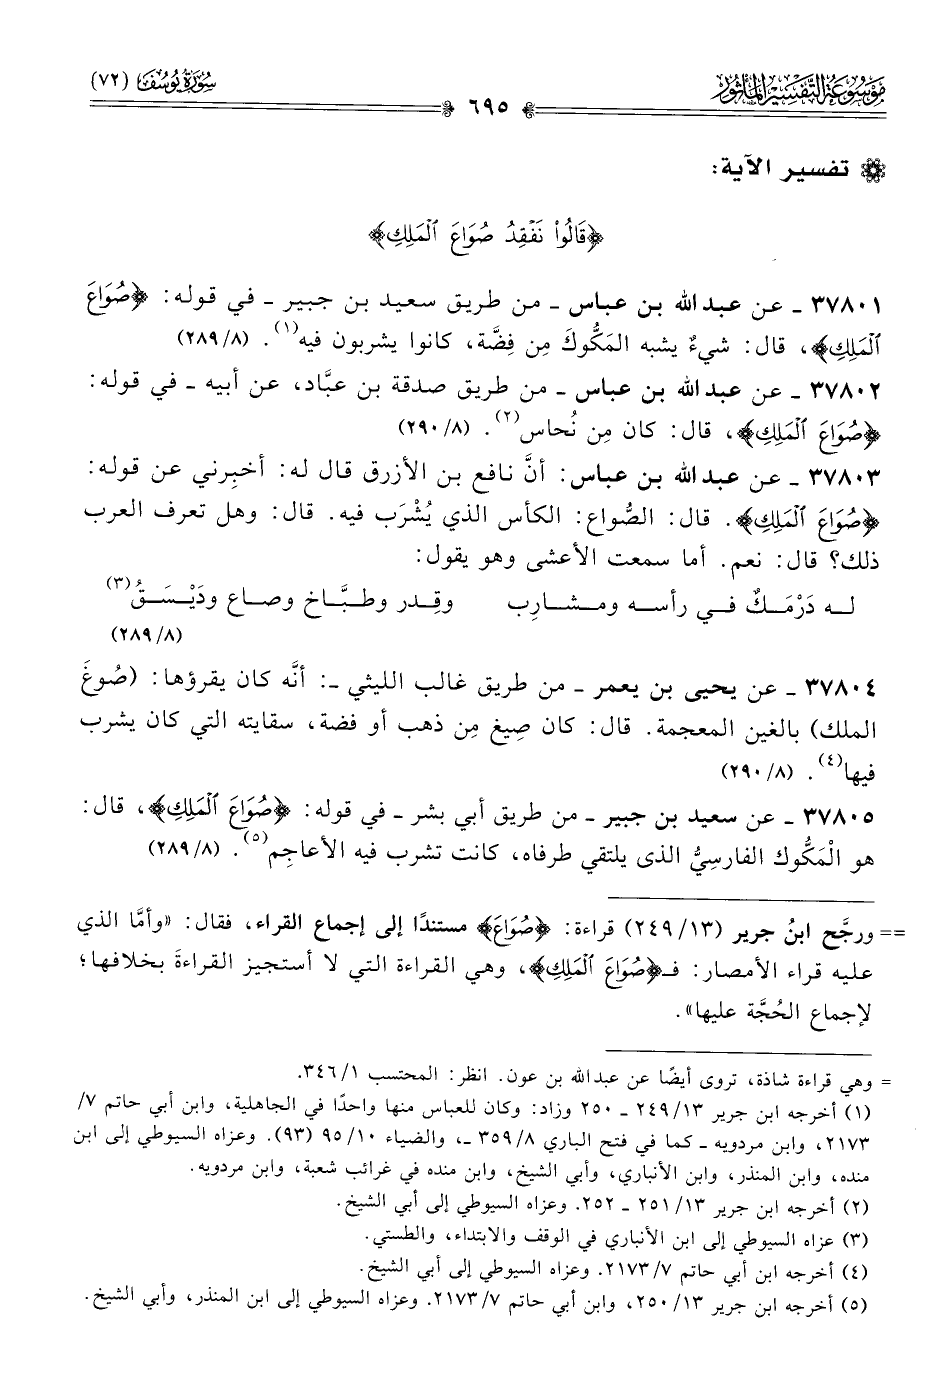 مَوْسُوعَة التَّفْسِيرِ المَأْثُور
سُورَةُ يُوسُفَ (٧٢)
٦٩٥
تفسير الآية:
﴿قَالُواْ نَفْقِدُ صُوَاعَ ٱلْمَلِكِ﴾
٣٧٨٠١ ـ عن عبد الله بن عباس ـ من طريق سعيد بن جبير ـ في قوله: ﴿صُوَاعَ
ٱلْمَلِكِ﴾، قال: شيءٌ يشبه المَكُّوكَ مِن فِضَّة، كانوا يشربون فيه(١). (٢٨٩/٨)
٣٧٨٠٢ ـ عن عبد الله بن عباس ـ من طريق صدقة بن عبَّاد، عن أبيه ـ في قوله:
﴿صُوَاعَ ٱلْمَلِكِ﴾، قال: كان مِن نُحاس(٢). (٢٩٠/٨)
٣٧٨٠٣ ـ عن عبد الله بن عباس: أنَّ نافع بن الأزرق قال له: أخبِرني عن قوله:
﴿صُوَاعَ ٱلْمَلِكِ﴾. قال: الصُّواع: الكأس الذي يُشْرَب فيه. قال: وهل تعرف العرب
ذلك؟ قال: نعم. أما سمعت الأعشى وهو يقول:
له دَرْمَكٌ في رأسه ومشارِب وقِدر وطبَّاخ وصاع ودَيْسَقُ(٣)
(٢٨٩/٨)
٣٧٨٠٤ ـ عن يحيى بن يعمر ـ من طريق غالب الليثي ـ: أنَّه كان يقرؤها: (صُوغَ
الملك) بالغين المعجمة. قال: كان صِيغ مِن ذهب أو فضة، سقايته التي كان يشرب
فيها(٤). (٢٩٠/٨)
٣٧٨٠٥ ـ عن سعيد بن جبير ـ من طريق أبي بشر ـ في قوله: ﴿صُوَاعَ ٱلْمَلِكِ﴾، قال:
هو الْمَكُّوك الفارسِيُّ الذى يلتقي طرفاه، كانت تشرب فيه الأعاجِم(٥). (٢٨٩/٨)
== ورجَّح ابنُ جرير (٢٤٩/١٣) قراءة: ﴿صُوَاعَ﴾ مستندًا إلى إجماع القراء، فقال: «وأمَّا الذي
عليه قراء الأمصار: فـ﴿صُوَاعَ ٱلْمَلِكِ﴾، وهي القراءة التي لا أستجيز القراءةَ بخلافها؛
لإجماع الحُجَّة عليها».
= وهي قراءة شاذة، تروى أيضًا عن عبد الله بن عون. انظر: المحتسب ٣٤٦/١.
(١) أخرجه ابن جرير ٢٤٩/١٣ ـ ٢٥٠ وزاد: وكان للعباس منها واحدًا في الجاهلية، وابن أبي حاتم ٧/
٢١٧٣، وابن مردويه ـ كما في فتح الباري ٣٥٩/٨ ـ، والضياء ٩٥/١٠ (٩٣). وعزاه السيوطي إلى ابن
منده، وابن المنذر، وابن الأنباري، وأبي الشيخ، وابن منده في غرائب شعبة، وابن مردويه.
(٢) أخرجه ابن جرير ٢٥١/١٣ ـ ٢٥٢. وعزاه السيوطي إلى أبي الشيخ.
(٣) عزاه السيوطي إلى ابن الأنباري في الوقف والابتداء، والطستي.
(٤) أخرجه ابن أبي حاتم ٢١٧٣/٧. وعزاه السيوطي إلى أبي الشيخ.
(٥) أخرجه ابن جرير ٢٥٠/١٣، وابن أبي حاتم ٢١٧٣/٧. وعزاه السيوطي إلى ابن المنذر، وأبي الشيخ.